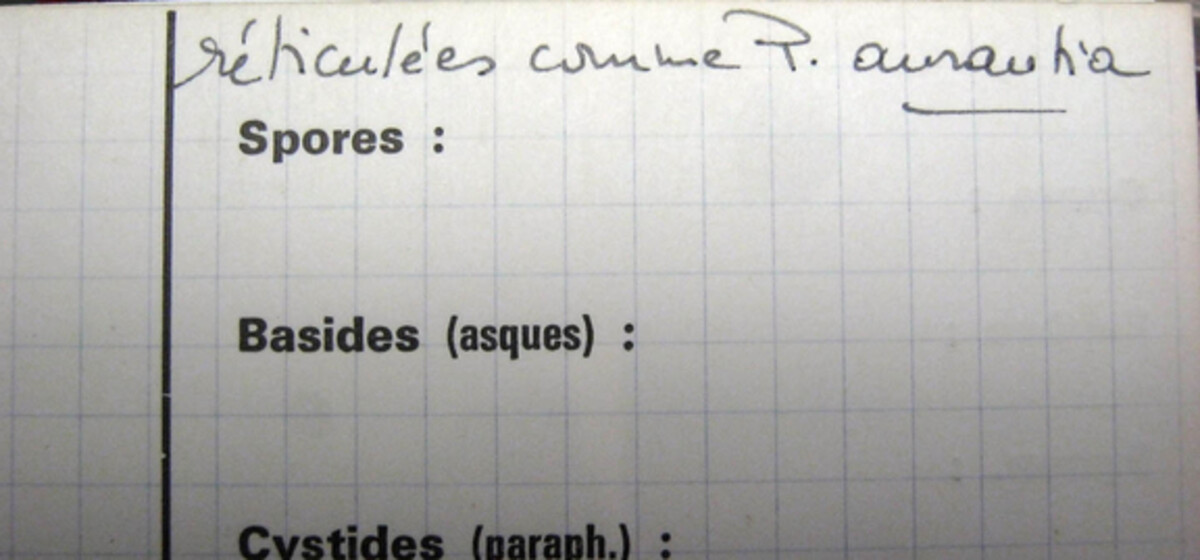 réticulées comme P. aurantia
Spores :
Basides (asques) :
Cystides (paraph.) :